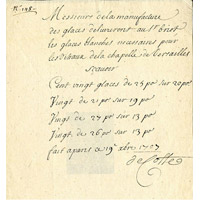 Messieurs de la manufacture
des glaces delivreront au Sr. Briot
les glaces blanches necessaires pour
les vitraux de la chapelle de Versailles
Scavoir
Cent vingt glaces de 25 po sur 20 po
Vingt de 21 po sur 19 po
Vingt de 27 sur 13 po
Vingt de 26 po sur 13 po
fait a paris ce 19 xbre 1707
de Cotte